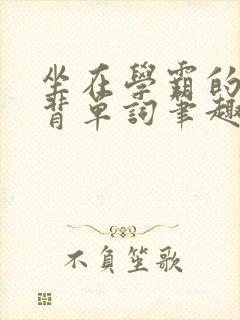 坐在學霸的
背單詞筆趣
不負笙歌